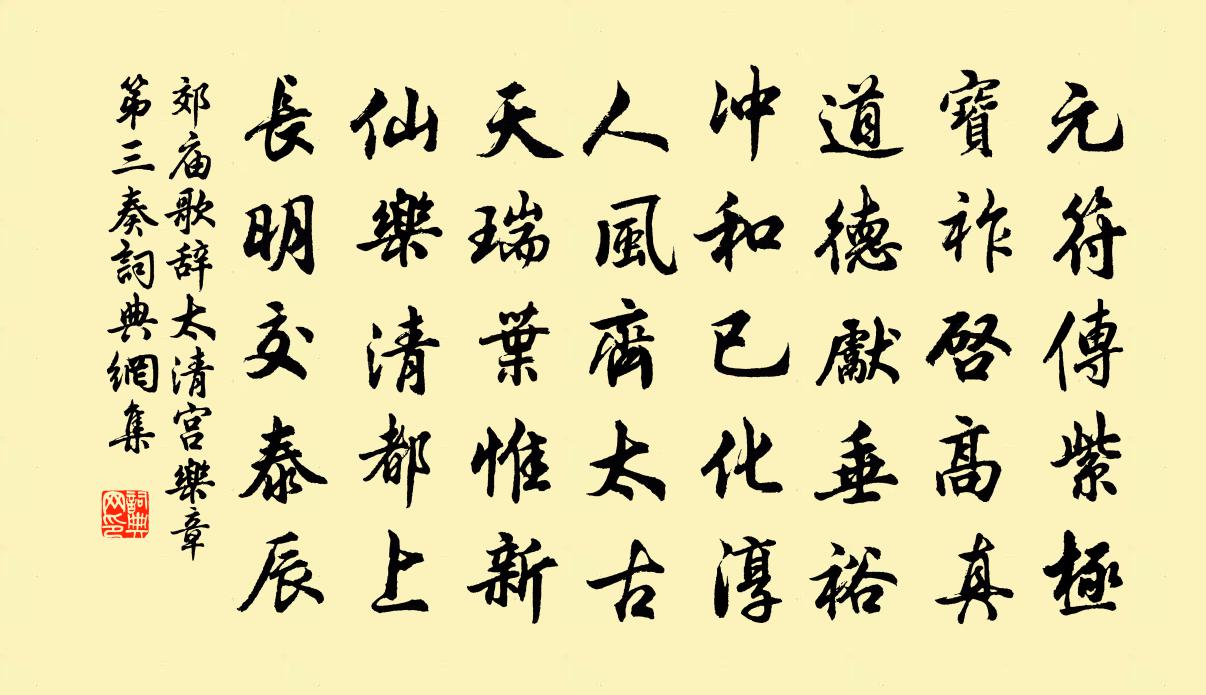 元符傳紫極
寶祚啓高真
道德猷垂裕
沖和已化淳
人風齊太古
天瑞葉惟新
仙樂清都上
長明交泰辰
郊庙歌辞太清宮樂章
第三奏詞典網集
詞典网印